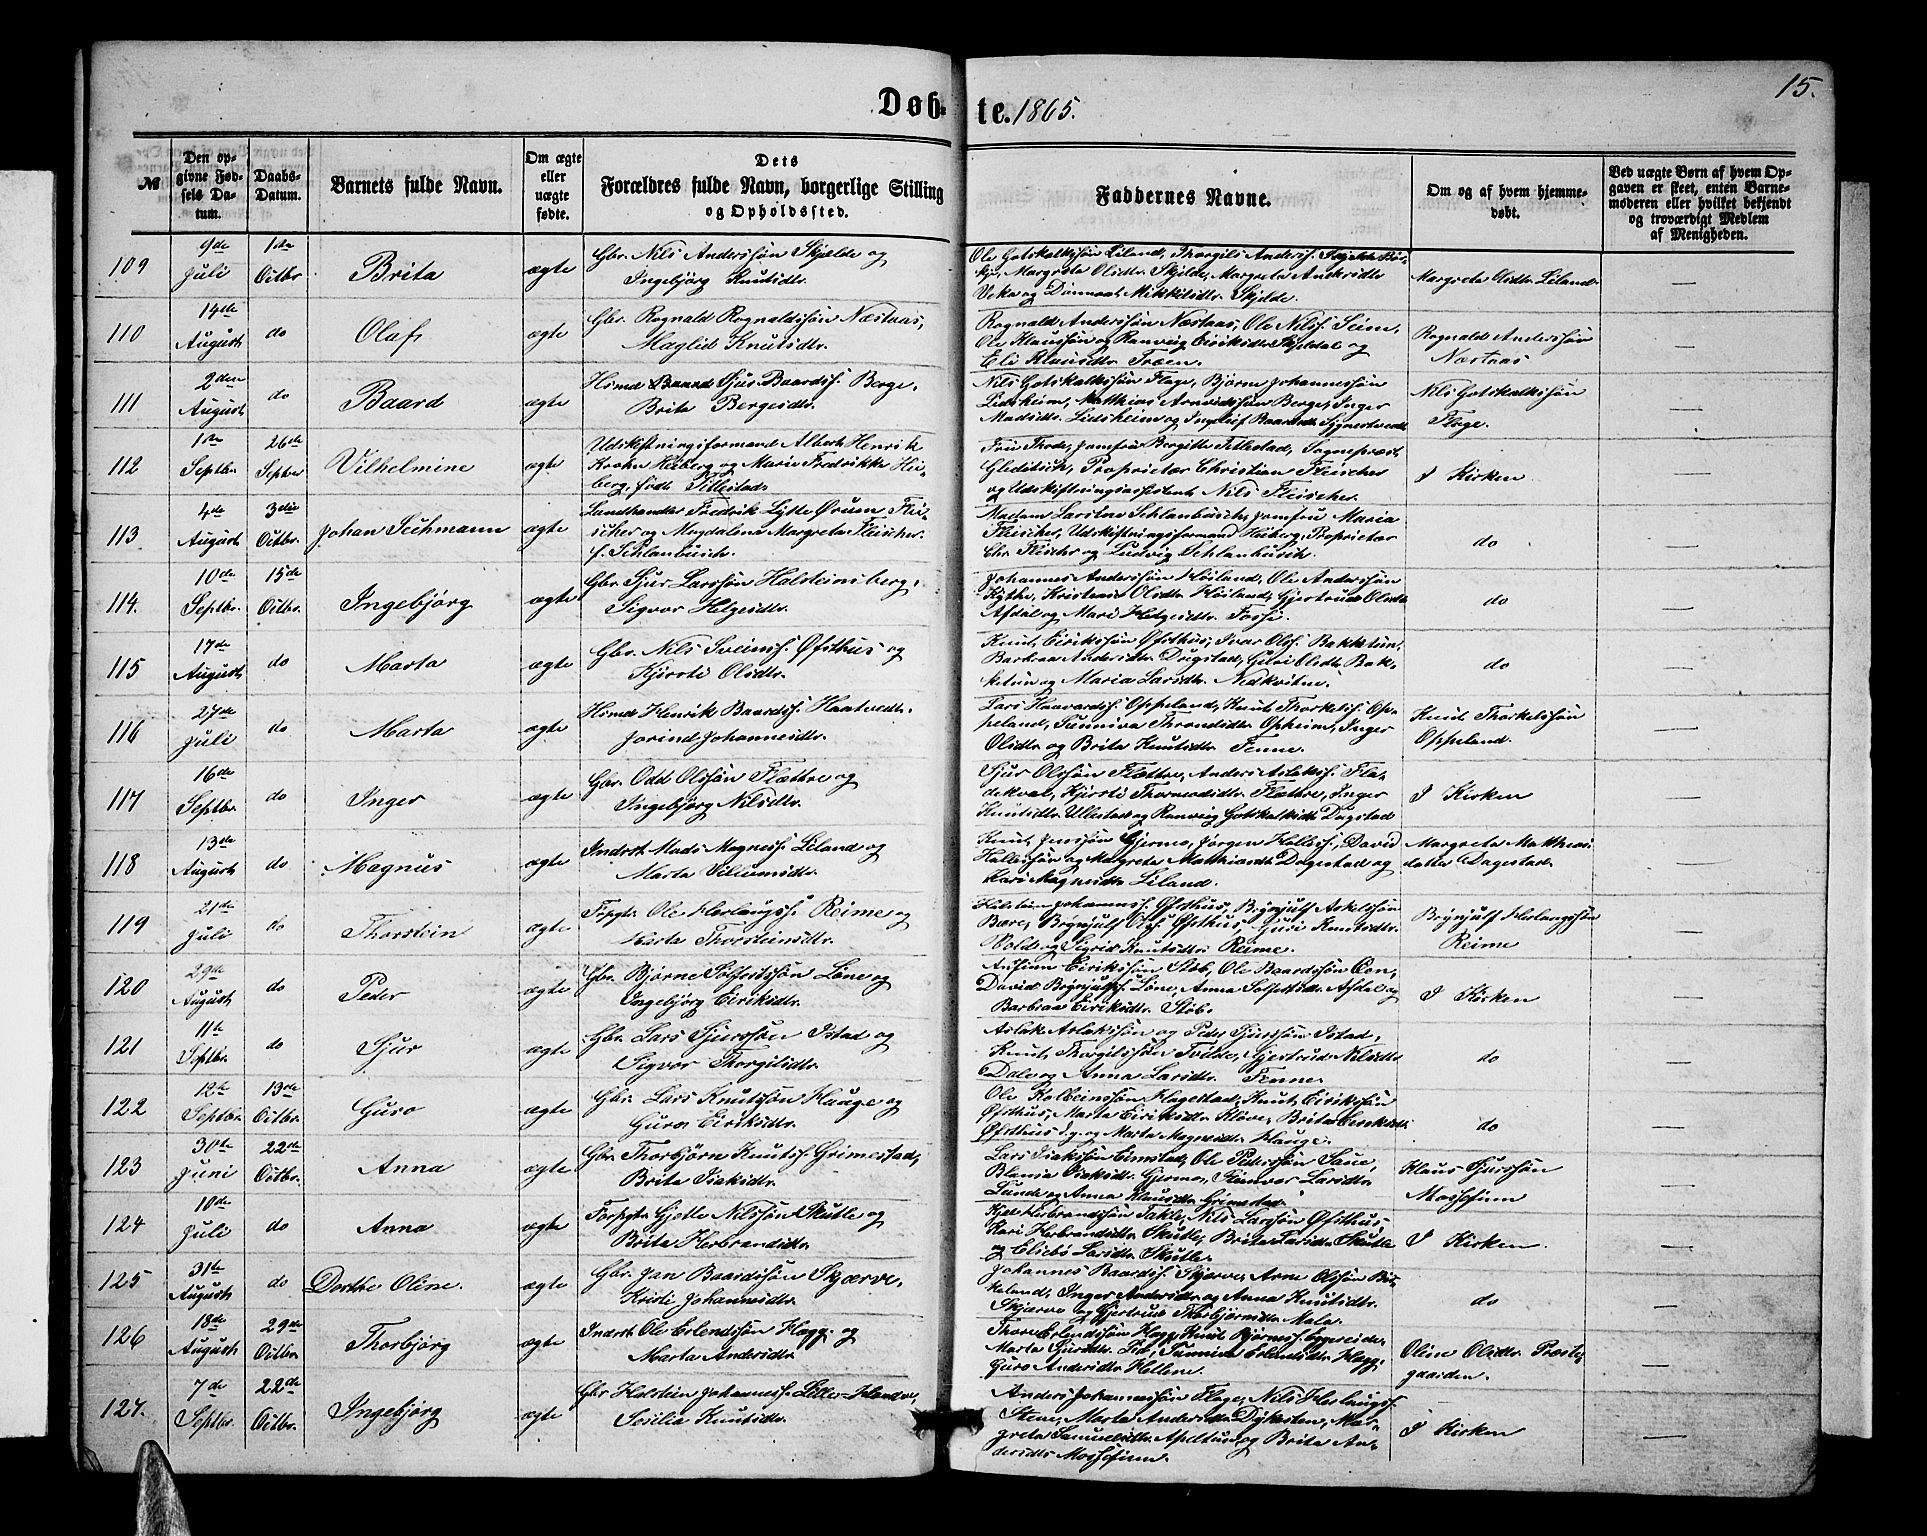 15.
Døb- te. 1865.
№
Den op-
givne Fød-
sels Da-
tum.
Daabs-
Datum.
Barnets fulde Navn.
Om ægte
eller
uægte
fødte.
Dets
Forældres fulde Navn, borgerlige Stilling
og Opholdssted.
Faddernes Navne.
Om og af hvem hjemme-
døbt.
Ved uægte Børn af hvem Op-
gaven er skeet, enten Barne-
moderen eller hvilket bekjendt
og troværdigt Medlem
af Menigheden.
109
9de
Juli
1ste
Octbr
Brita
ægte
Gbr. Nils Anderssøn Skjelde og
Ingebjörg Knutsdtr.
Ole Gotskalkssøn Liland, Thorgils Anderss.
Margreta Olsdtr. Skjelde, Margreta Andersdtr
Veka og Mikkelsdtr. Skjelde.
Margreta Olsdtr. Liland
—
110
14de
August
do
Olaf
ægte
Gbr. Rognald Rognaldssøn Næstaas,
Maglid Knutsdtr.
Rognald Anderssøn Næstaas, Ole Nilss. Seim,
Ole Klaussøn og Ranveig Eiriksdtr. Skjeldal og
Eli Klausdtr. Troen.
Rognald Anderssøn
Næstaas
—
111
2den
August
do
Baard
ægte
Hsmd Sjur Baardss. Berge,
Brita Bergesdtr.
Nils Gotskalkssøn Flage, Bjørne Johannessøn
Lidsheim, Matthias Arnvidssøn Berge, Inger
Madsdtr. Lidsheim og Ingelief Baardsdtr.
Nils Gotskalkssøn
Flage.
—
112
1ste
Septbr.
26de
Septbr
Vilhelmine
ægte
Udskiftningsformand Albert Henrik
Krohn Heiberg og Marie Fredrikke Hei-
berg, født Titlestad.
Fru Thode, Jomfru Bergitte Titlestad, Sogneprest
Gleditsch, Proprietær Christian Fleischer
og Udskiftningsassistent Nils Fleischer.
I Kirken
—
113
4de
August
3die
Octbr.
Johan Sechmann
ægte
Landhandler Fredrik Lytte Ørum Flei-
scher og Magdalena Margreta Fleischer
f. Schlanbusch.
Madam Schlanbusch, Jomfru Maria
Fleischer, Udskiftningsformand Heiberg, Proprietær
Chr. Fleischer og Ludvig Schlanbusch.
do
—
114.
10de
Septbr.
15de
Octbr.
Ingebjørg
ægte
Gbr. Sjur Larssøn Halsteinsberg,
Sigvor Helgesdtr.
Johannes Anderssøn Høiland, Ole Anderssøn
Kythe, Kristense Olsdtr. Høiland, Gjertrud Olsdtr
Afdal og Mari Helgesdtr. Fosse.
do
—
115
17de
August
do
Marta
ægte
Gbr. Nils Sveinss. Øfsthus og
Kjersti Olsdtr.
Knut Eirikssøn Øfsthus, Ivar Olss. Bakketun,
Barbraa Andersdtr. Dugstad, Guri Olsdtr. Bak-
ketun og Maria Larsdtr. Nedkvitne.
do
—
116
27de
Juli
do
Marta
ægte
Hsmd Henrik Baardss. Haatvedt.
Jorind Johannesdtr.
Lars Haavardss. Oppeland, Knut Thorkelss. Op-
peland, Sunniva Throndsdtr. Opheim, Inger
Olsdtr og Brita Knutsdtr. Fenne.
Knut Thorkelssøn
Oppeland.
—
117
16de
Septbr.
do
Inger
ægte
Gbr. Odd Olssøn Flæthre og
Ingebjørg Nilsdtr.
Sjur Olssøn Flæthre, Anders Aslakss. Fla-
dekval, Kjersti Thormodsdtr. Flæthre, Inger
Knutsdtr. Ullestad og Ranveig Gotskalksdtr. Dagstad
I Kirken
—
118
13de
August
do
Magnus
ægte
Inderst Mads Magness. Liland og
Marta Viliumsdtr.
Knut Jenssøn Gjerme, Jørgen Hellss., David
Hallessøn og Margreta Matthiasdtr. Dagestad og
Kari Magnesdtr. Liland.
Margreta Matthias-
datter Dagestad.
—
119
21de
Juli
do
Thorstein
ægte
Forpgtr. Ole Herlaugss. Reime og
Marta Thorsteinsdtr.
Halstein Johanness. Øfsthus, Brynjulf Askelssøn
Bære, Brynjulf Olss. Øfsthus, Guri Knutsdtr.
Vold og Sigrid Knutsdtr. Reime.
Brynjulf Herlaugssøn
Reime
—
120
29de
August
do
Peder
ægte
Gbr. Bjørne Sølfestssøn Løne og
Ingebjörg Eiriksdtr.
Anfinn Eirikssøn Støb, Ole Baardssøn Øen,
David Brynjulfss. Løne, Anna Selfestsdtr. Afdal og
Barbraa Eiriksdtr. Støb.
I Kirken
—
121
11te
Septbr.
do
Sjur
ægte
Gbr. Lars Sjurssøn Istad og
Sigvor Thorgilsdtr.
Aslak Aslakssøn og Peder Sjurssøn Istad,
Knut Thorgilssøn Tvilde, Gjertrud Nilsdtr
Dale og Anna Larsdtr. Fenne.
do
—
122
12te
Septbr.
13de
Octbr.
Guro
ægte
Gbr. Lars Knutssøn Hauge og
Guro Eiriksdtr.
Ole Kolbeinssøn Flagestad, Knut Eirikssøn
Øfsthus, Marta Eiriksdtr. Kløve, Brita Eiriksdtr.
Øfsthus d.y. og Marta Magnesdtr. Hauge.
do
—
123
30te
Juni
22de
Octbr.
Anna
ægte
Gbr. Thorbjørn Knutss. Grimestad,
Brita Isaksdtr.
Lars Isakssøn Eimstad, Ole Pederssøn Saue,
Isaksdtr. Gjerme, Larsdtr.
Lunde og Anna Klausdtr. Grimestad.
Klaus Sjurssøn
Mossefinn
—
124
10de
Juli
do
Anna
ægte
Forpgtr. Gjelle Nilssøn Skutle og
Brita Herbrandsdtr.
Herbrandssøn Takle, Nils Larssøn Øfsthus,
Kari Herbrandsdtr. Skutle, Brita Larsdtr. Skutle
og Larsdtr. Skutle.
I Kirken.
—
125
31te
August
do
Dorthe Oline.
ægte
Gbr. Jan Baardssøn Skjærve,
Kristi Johannesdtr.
Johannes Baardss. Skjerve, Arne Olssøn Bir-
keland, Inger Andersdtr. og Anna Knutsdtr.
Skjærve og Gjertrud Thorbjørnsdtr. Mala.
do
—
126
18de
August
29de
Octbr.
Thorbjørg
ægte
Inderst Ole Erlendssøn Hægg og
Marta Andersdtr.
Thore Erlendssøn Hægg, Knut Bjørness. Eggereide,
Marta Sunniva Erlendsdtr. Hægg,
Guro Andersdtr. Hellene.
Oline Olsdtr. Preste-
gaarden.
—
127.
7de
Septbr.
22de
Octbr.
Ingebjørg
ægte
Gbr Halstein Johanness. Lille-Liland,
Sesilia Knutsdtr.
Anders Johannessøn Flage, Nils Herlaugss.
Steene, Marta Andersdtr. Dykesten, Mar-
greta Samuelsdtr. Apeltun og Brita An-
dersdtr Mossefinn.
I Kirken
—